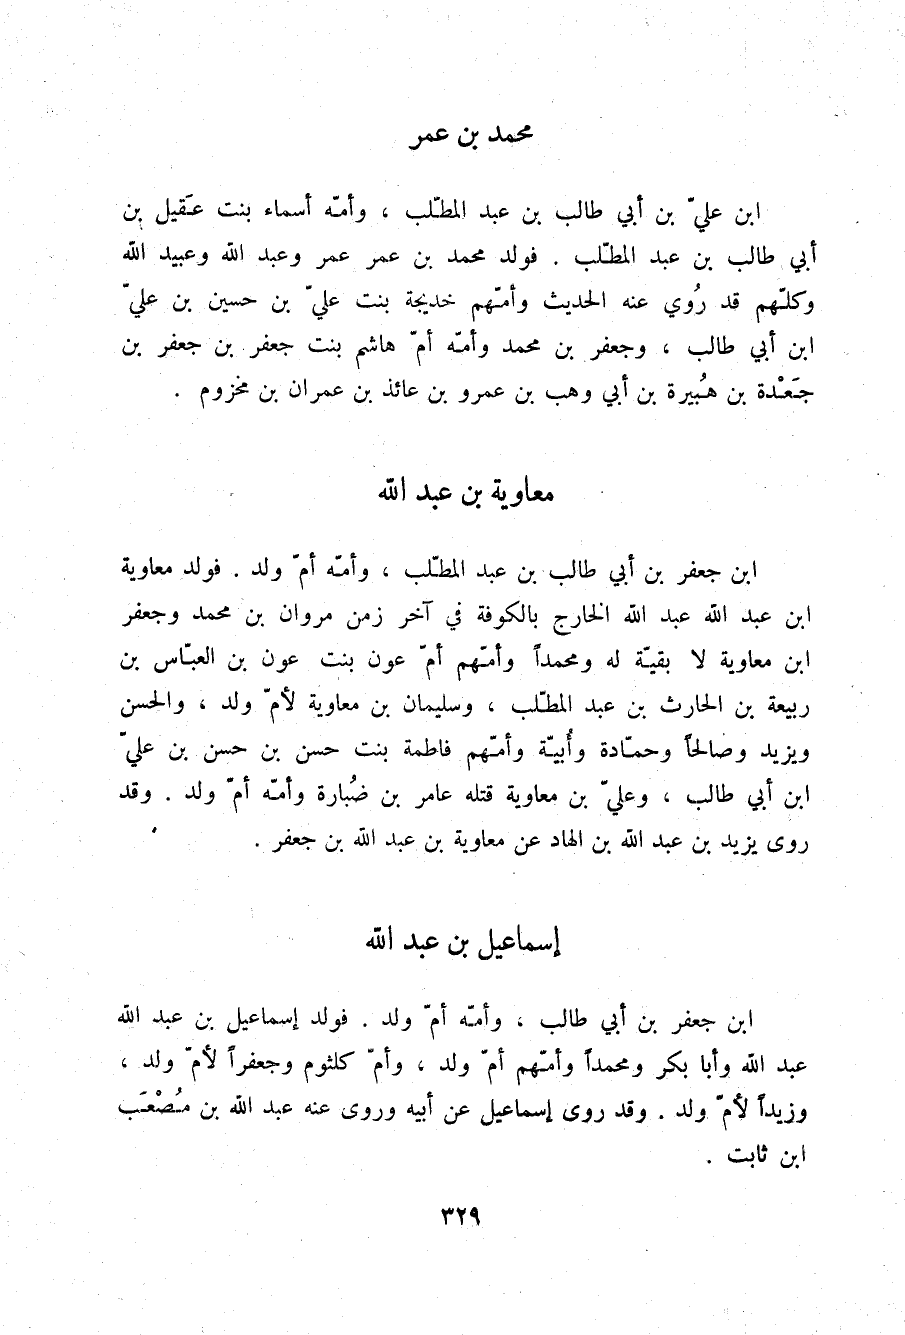 محمد بن عمر
ابن عليّ بن أبي طالب بن عبد المطّلب ، وأمّه أسماء بنت عَقيل بن
أبي طالب بن عبد المطّلب . فولد محمد بن عمر عمر وعبد الله وعبيد الله
وكلّهم قد رُوي عنه الحديث وأمّهم خديجة بنت عليّ بن حسين بن عليّ
ابن أبي طالب ، وجعفر بن محمد وأمّه أمّ هاشم بنت جعفر بن جعفر بن
جَعْدة بن هُبيرة بن أبي وهب بن عمرو بن عائذ بن عمران بن مخزوم .
معاوية بن عبد الله
ابن جعفر بن أبي طالب بن عبد المطّلب ، وأمّه أمّ ولد . فولد معاوية
ابن عبد الله عبد الله الخارج بالكوفة في آخر زمن مروان بن محمد وجعفر
ابن معاوية لا بقيّة له ومحمداً وأمّهم أمّ عون بنت عون بن العبّاس بن
ربيعة بن الحارث بن عبد المطّلب ، وسليمان بن معاوية لأمّ ولد ، والحسن
ويزيد وصالحاً وحمّادة وأُبيّة وأمّهم فاطمة بنت حسن بن حسن بن عليّ
ابن أبي طالب ، وعليّ بن معاوية قتله عامر بن ضُبارة وأمّه أمّ ولد . وقد
روى يزيد بن عبد الله بن الهاد عن معاوية بن عبد الله بن جعفر .
إسماعيل بن عبد الله
ابن جعفر بن أبي طالب ، وأمّه أمّ ولد . فولد إسماعيل بن عبد الله
عبد الله وأبا بكر ومحمداً وأمّهم أمّ ولد ، وأمّ كلثوم وجعفراً لأمّ ولد ،
وزيداً لأمّ ولد . وقد روى إسماعيل عن أبيه وروى عنه عبد الله بن مُصْعَب
ابن ثابت .
٣٢٩